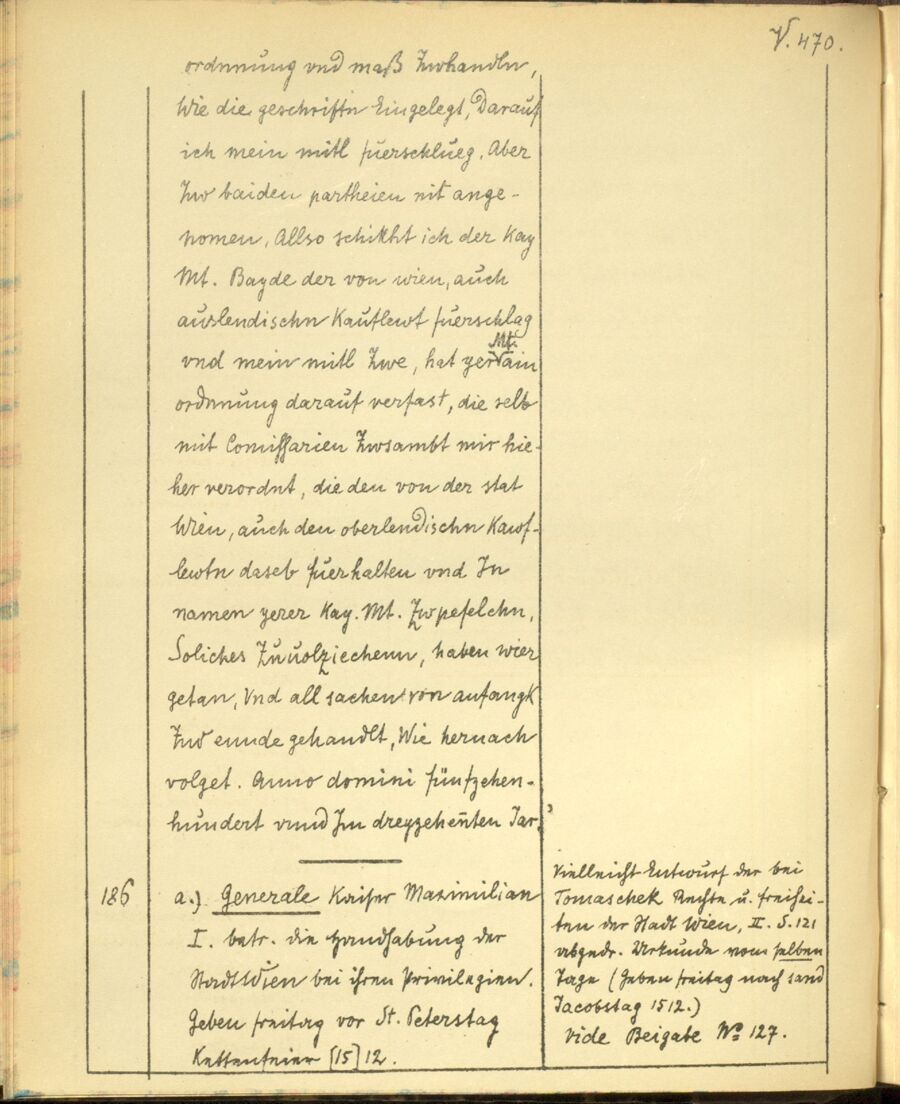 V. 470.
ordnnung vnd maß Zwhandln,
Wie die geschriftn Eingelegt, Darauf
ich mein mitl fuerschlueg. Aber
Zw baiden partheien nit ange-
nomen, Allso schikht ich der Kay
Mt. Bayde der von wien, auch
auslendischn Kauflewt fuerschlag
vnd mein mitl Zwe, hat yer Mt. ain
ordnnung darauf verfast, die selb
mit Comissarien Zwsambt mir hie-
her verordnt, die den von der stat
Wien, auch den oberlendischn Kawf-
lewtn daseb fuerhalten vnd In
namen yerer Kay. Mt. Zwpefelchn,
Soliches Zuuolziechenn, haben wier
getan, Vnd all sachen von anfangk
Zw ennde gehandlt, Wie hernach
volget. Anno domini fünfzehen-
hundert vnnd Im dreyzehenten Jar.
186
a.) Generale Kaiser Maximilian
I. betr. die Handhabung der
Stadt Wien bei ihren Privilegien.
Geben freitag vor St. Peterstag
Kettenfeier [15]12.
Vielleicht Entwurf der bei
Tomaschek Rechte u. Freihei-
ten der Stadt Wien, II. S. 121
abgedr. Urkunde vom selben
Tage (Geben freitag nach sand
Jacobstag 1512.)
Vide Beigabe No 127.